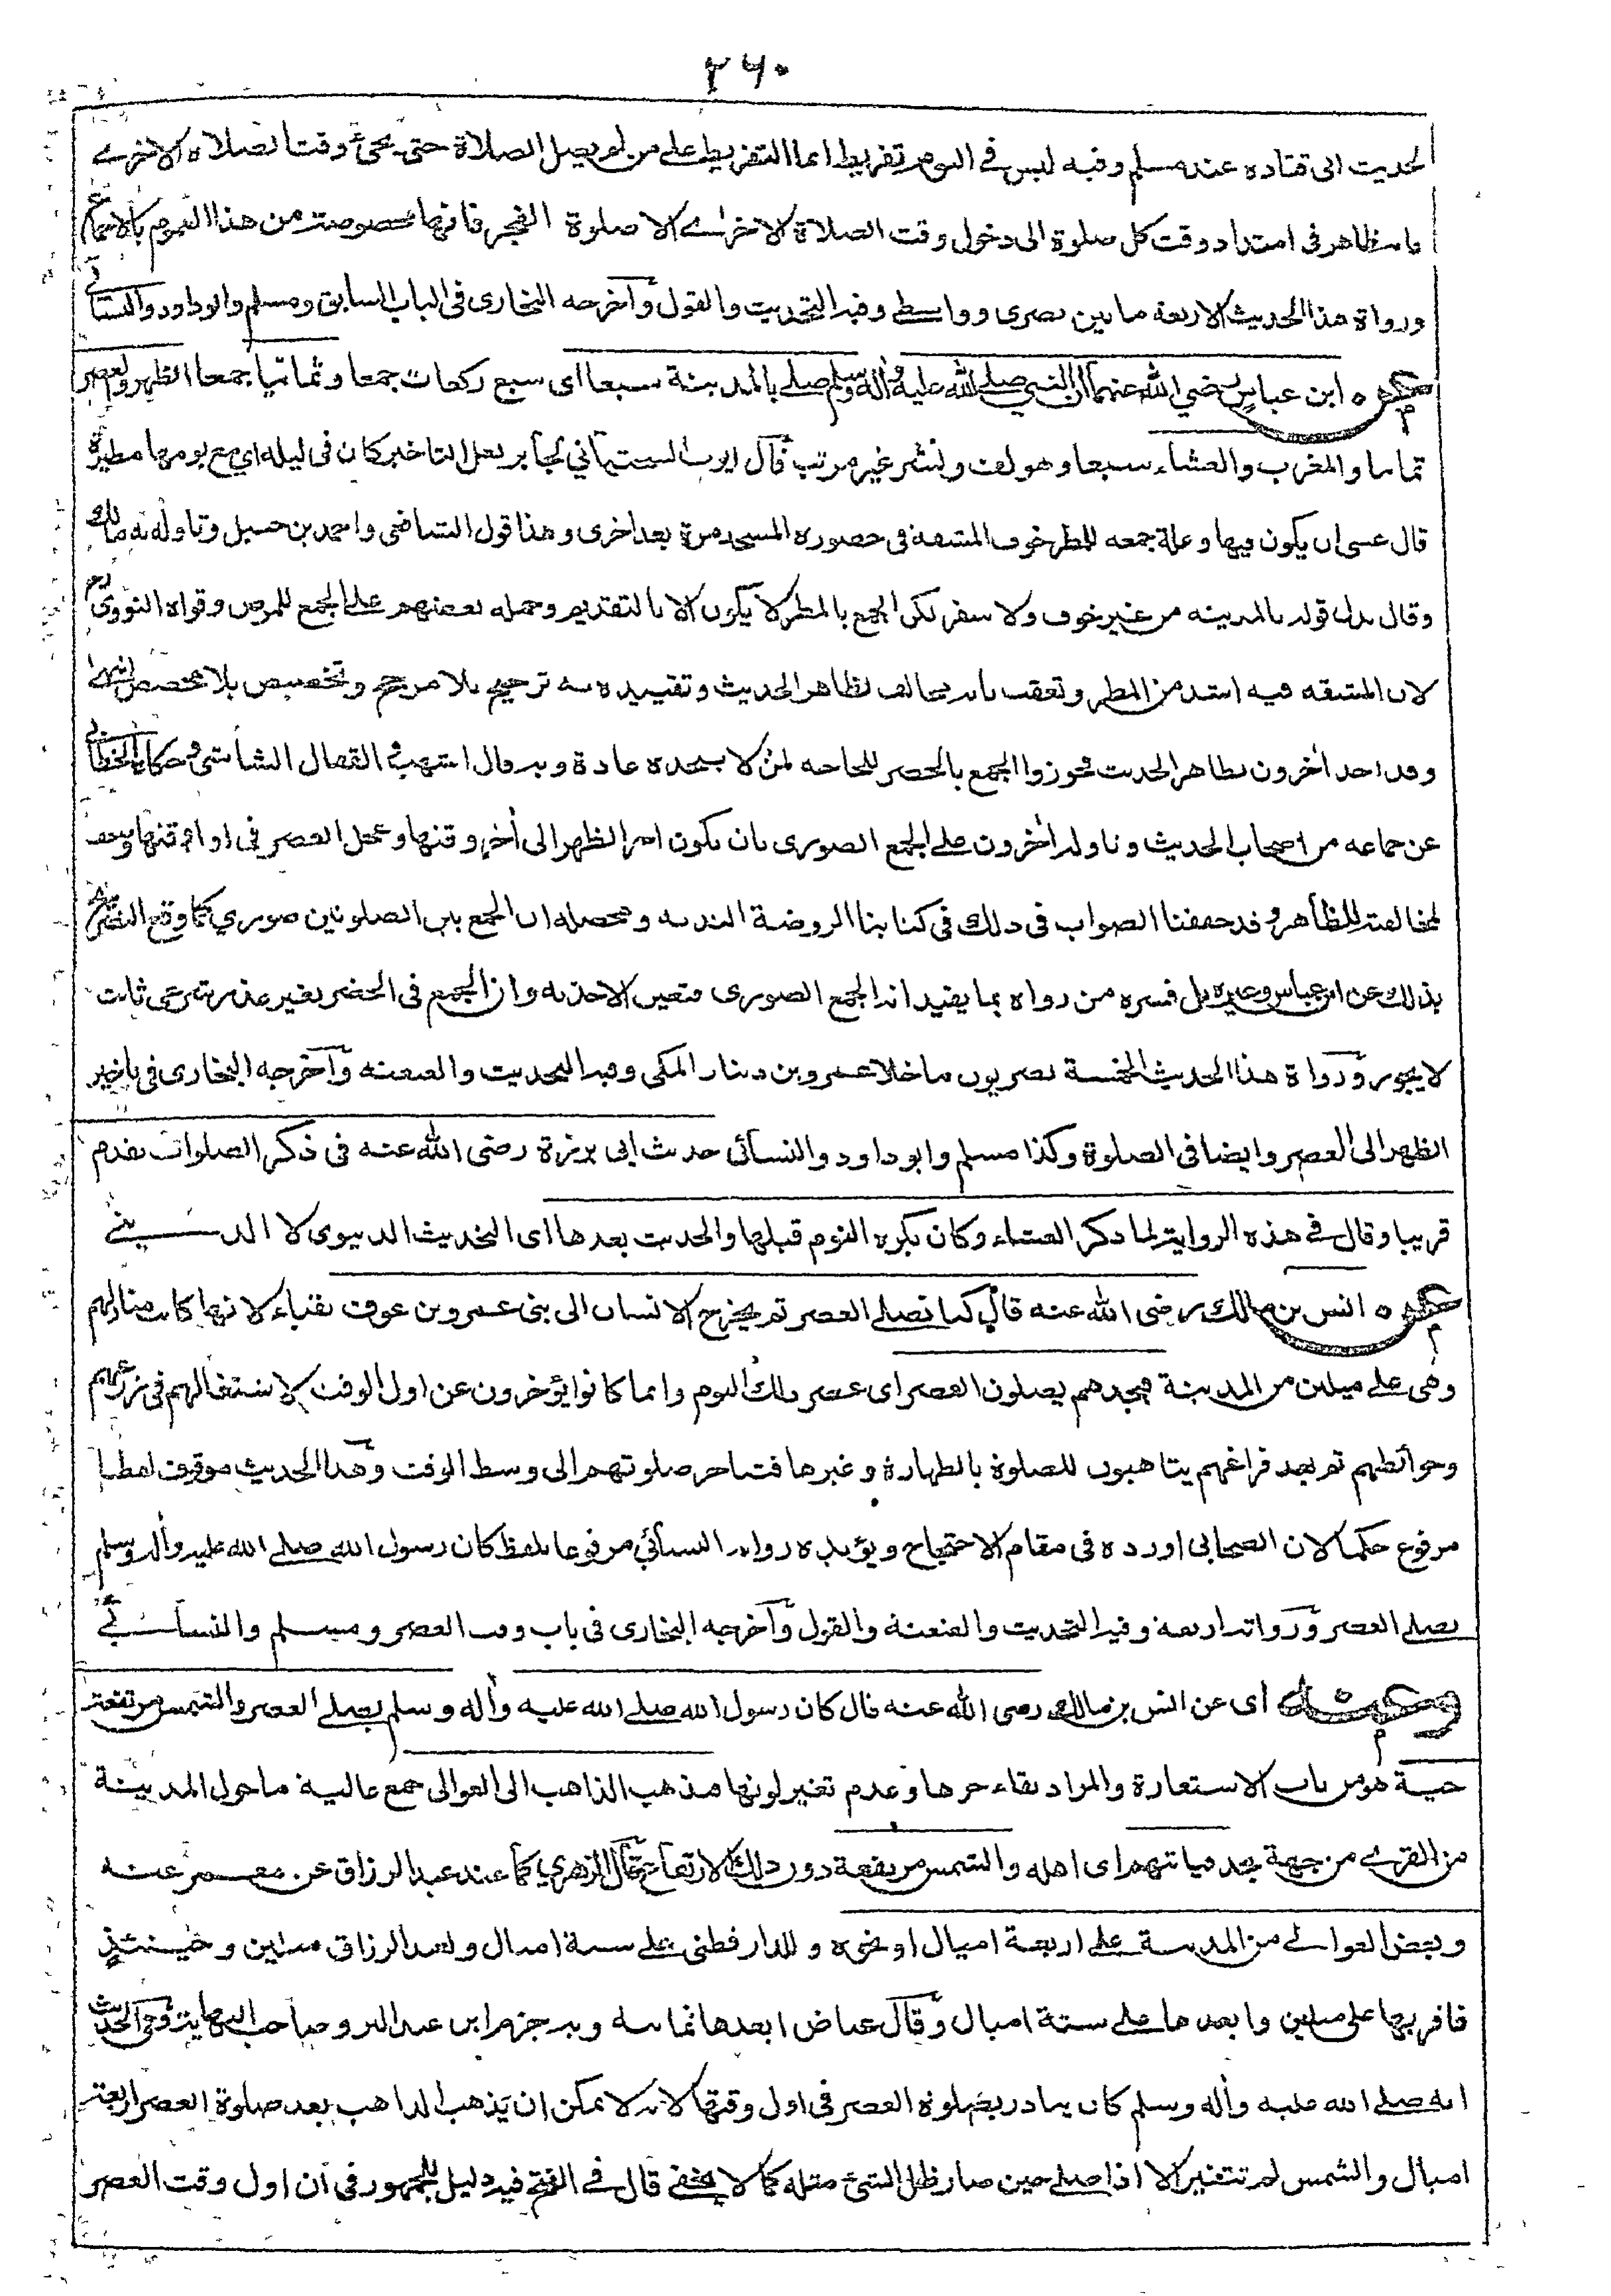 ٢٦٠
لحديث ابى قتاده عند مسلم وفيه ليس فى النوم تفريط انما التفريط على من لم يصل الصلاة حتى يجئ وقت الصلاه الاخرى
ما ظاهر فى امتداد وقت كل صلوة الى دخول وقت الصلاة الاخرى الا صلوة الفجر فانها مخصوصة من هذا العموم بالاجماع
ورواة هذا الحديث الاربعة ما بين بصرى وواسطى وفيه التحديث والقول وآخرجه البخارى فى الباب السابق ومسلم وابو داود والنسائى
عن ابن عباس رضي الله عنهما ان النبي صلى الله عليه وآله وسلم صلى بالمدينة سبعا اى سبع ركعات جمعا وثمانيا جمعا الظهر والعصر
ثمانيا والمغرب والعشاء سبعا وهو لف ونشر غير مرتب قال ايوب السختياني لجابر لعل التاخير كان فى ليله اي مع يومها مطيرة
قال عسى ان يكون فيها وعلة جمعه للمطر خوف المشقه فى حضوره المسجد مرة بعد اخرى وهذا قول الشافعى واحمد بن حنبل وتاوله به مالك
وقال بدل قوله بالمدينه من غير خوف ولا سفر لكن الجمع بالمطر لا يكون الا بالتقديم وحمله بعضهم على الجمع للمرض وقواه النووى رح
لان المشقه فيه اشد من المطر وتعقب بانه مخالف لظاهر الحديث وتقييده به ترجيح بلا مرجح وتخصيص بلا مخصص انتهى
وقد اخذ اخرون بظاهر الحديث فجوزوا الجمع بالحضر للحاجه لمن لا يتخذه عادة وبه قال اشهب والقفال الشاشى وحكاه الخطابى
عن جماعه من اصحاب الحديث وتاوله اخرون على الجمع الصورى بان يكون اخر الظهر الى أخر وقتها وعجل العصر فى اول وقتها وضعف
لمخالفته للظاهر وقد حققنا الصواب فى ذلك فى كتابنا الروضة الندية ومحصله ان الجمع بين الصلوتين صوري كما وقع التصريح
بذلك عن ابن عباس وغيره بل فسره من رواه بما يفيد انه الجمع الصورى فتعين الاخذ به وان الجمع فى الحضر بغير عذر شرعى ثابت
لا يجوز ورواة هذا الحديث الخمسة بصريون ما خلا عمرو بن دينار المكى وفيه التحديث والعنعنه وآخرجه البخارى فى تاخير
الظهر الى العصر وايضا فى الصلوة وكذا مسلم وابو داود والنسائى حديث ابى برزة رضى الله عنه فى ذكر الصلوات تقدم
قريبا وقال فى هذه الرواية لما ذكر العشاء وكان يكره النوم قبلها والحديث بعدها اى التحديث الدنيوى لا الدينى
عن انس بن مالك رضى الله عنه قال كنا نصلى العصر ثم يخرج الانسان الى بنى عمرو بن عوف بقباء لانها كانت منازلهم
وهى على ميلين من المدينة فيجدهم يصلون العصر اى عصر ذلك اليوم وانما كانوا يؤخرون عن اول الوقت لاشتغالهم فى زرعهم
وحوائطهم ثم بعد فراغهم يتاهبون للصلوة بالطهارة وغيرها فتتاخر صلوتهم الى وسط الوقت وهذا الحديث موقوف لفظا
مرفوع حكما لان الصحابى اورده فى مقام الاحتجاج ويؤيده رواية النسائي مرفوعا بلفظ كان رسول الله صلى الله عليه وآله وسلم
يصلى العصر ورواته اربعه وفيه التحديث والعنعنة والقول وآخرجه البخارى فى باب وقت العصر ومسلم والنسائى
وعنه اى عن انس بن مالك رضى الله عنه قال كان رسول الله صلى الله عليه وأله وسلم يصلى العصر والشمس مرتفعة
حية هو من باب الاستعارة والمراد بقاء حرها وعدم تغير لونها فيذهب الذاهب الى العوالى جمع عالية ما حول المدينة
من القرى من جهة نجد فياتيهم اى اهله والشمس مرتفعة دون ذلك الارتفاع قال الزهرى كما عند عبد الرزاق عن معمر عنه
وبعض العوالى من المدينة على اربعة اميال او نحوه وللدارقطنى على ستة اميال ولعبد الرزاق ميلين وحينئذ
فاقربها على ميلين وابعدها على ستة اميال وقال عياض ابعدها ثمانيه وبه جزم ابن عبد البر وصاحب النهاية وفى الحديث
انه صلى الله عليه وأله وسلم كان يبادر بصلوة العصر فى اول وقتها لانه لا يمكن ان يذهب الذاهب بعد صلوة العصر اربعة
اميال والشمس لم تتغير الا اذا صلى حين صار ظل الشئ مثله كما لا يخفى قال فى الفتح فيه دليل للجمهور فى ان اول وقت العصر